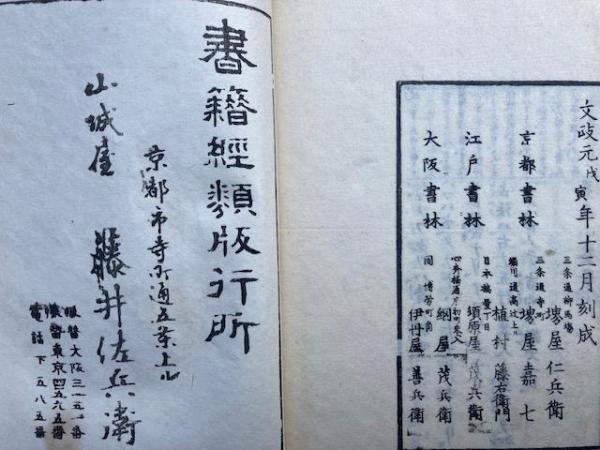 文政元戊寅年十二月刻成
京都書林
三条通柳馬場 堺屋仁兵衛
三条通寺町 堺屋嘉七
堀川通高辻上ル 植村藤右衛門
江戸書林
日本橋壹丁目 須原屋茂兵衛
大阪書林
心斎橋通 屋茂兵衛
同 博労町角 伊丹屋善兵衛
書籍經類版行所
京都市寺町通五条上ル
山城屋 藤井佐兵衛
振替大阪三一五一番
振替東京四五六五番
電話下五八五番